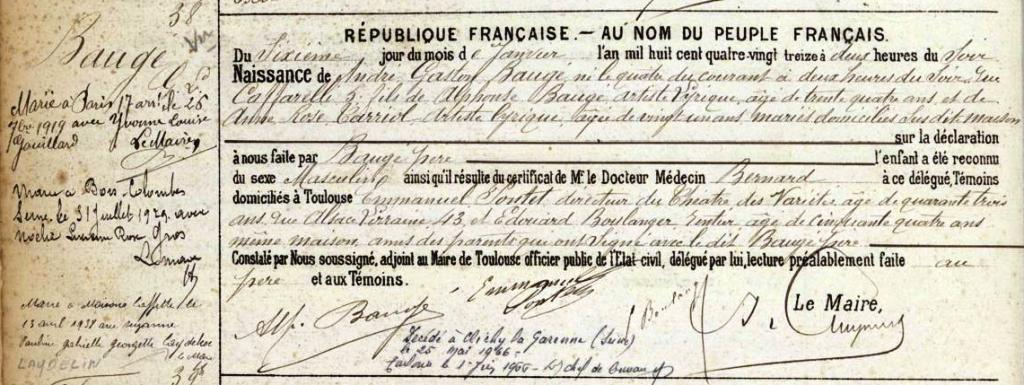 38
Baugé
Marié à Paris 17 arr. le 25
7bre 1919 avec Yvonne Louise
Gouillard
Le Maire
Marié à Bois-Colombes
Seine, le 31 juillet 1929 avec
Noélie Rose Gros
Marié à Maisons Laffitte le
13 avril 1938 avec Suzanne
Pauline Gabrielle Georgette Laydelin
LAYDELIN
RÉPUBLIQUE FRANÇAISE. — AU NOM DU PEUPLE FRANÇAIS.
Du Sixième jour du mois de Janvier l'an mil huit cent quatre-vingt treize à deux heures du Soir
Naissance de André Gaston Baugé né le quatre du courant à deux heures du Soir, rue
Caffarelli 3, fils de Alphonse Baugé, Artiste Lyrique, âgé de trente quatre ans, et de
Anne Rose Tarriol Artiste Lyrique, agée de vingt un ans, mariés domiciliés susdit maison
sur la déclaration
à nous faite par Baugé père l'enfant a été reconnu
du sexe Masculin ainsi qu'il résulte du certificat de Mr. le Docteur Médecin Bernard à ce délégué, Témoins
domiciliés à Toulouse Emmanuel Pontet, directeur du Théâtre des Variétés, âgé de quarante trois
ans, rue Alsace Lorraine 43, et Edouard Boulanger rentier, âgé de Cinquante quatre ans
même maison, amis des parents qui ont signé avec le dit Baugé père.
Constaté par Nous soussigné, adjoint au Maire de Toulouse officier public de l'Etat-civil, délégué par lui, lecture préalablement faite au
père et aux Témoins.
Emmanuel
Pontet
Le Maire,
Alf. Baugé
Décédé à Clichy la Garenne (Seine)
le 25 mai 1966